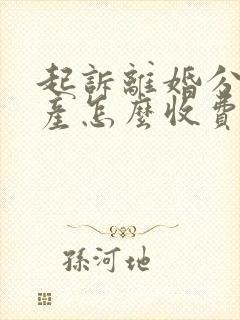 起訴離婚分
產怎麼收費
孫河地